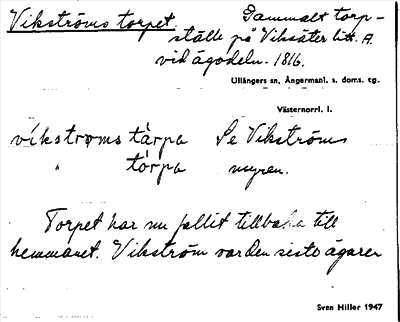 Vikströms torpet. Gammalt torp-
ställe på Viksäter litt. A.
vid ägodeln. 1816.
Ullångers sn, Ångermanl. s. doms. tg.
Västernorrl. l.
víkstrøms tàrpa Se Vikströms
" tórpa myren.
Torpet har nu fallit tillbaka till
hemmanet. Vikström var den siste ägaren
Sven Hiller 1947